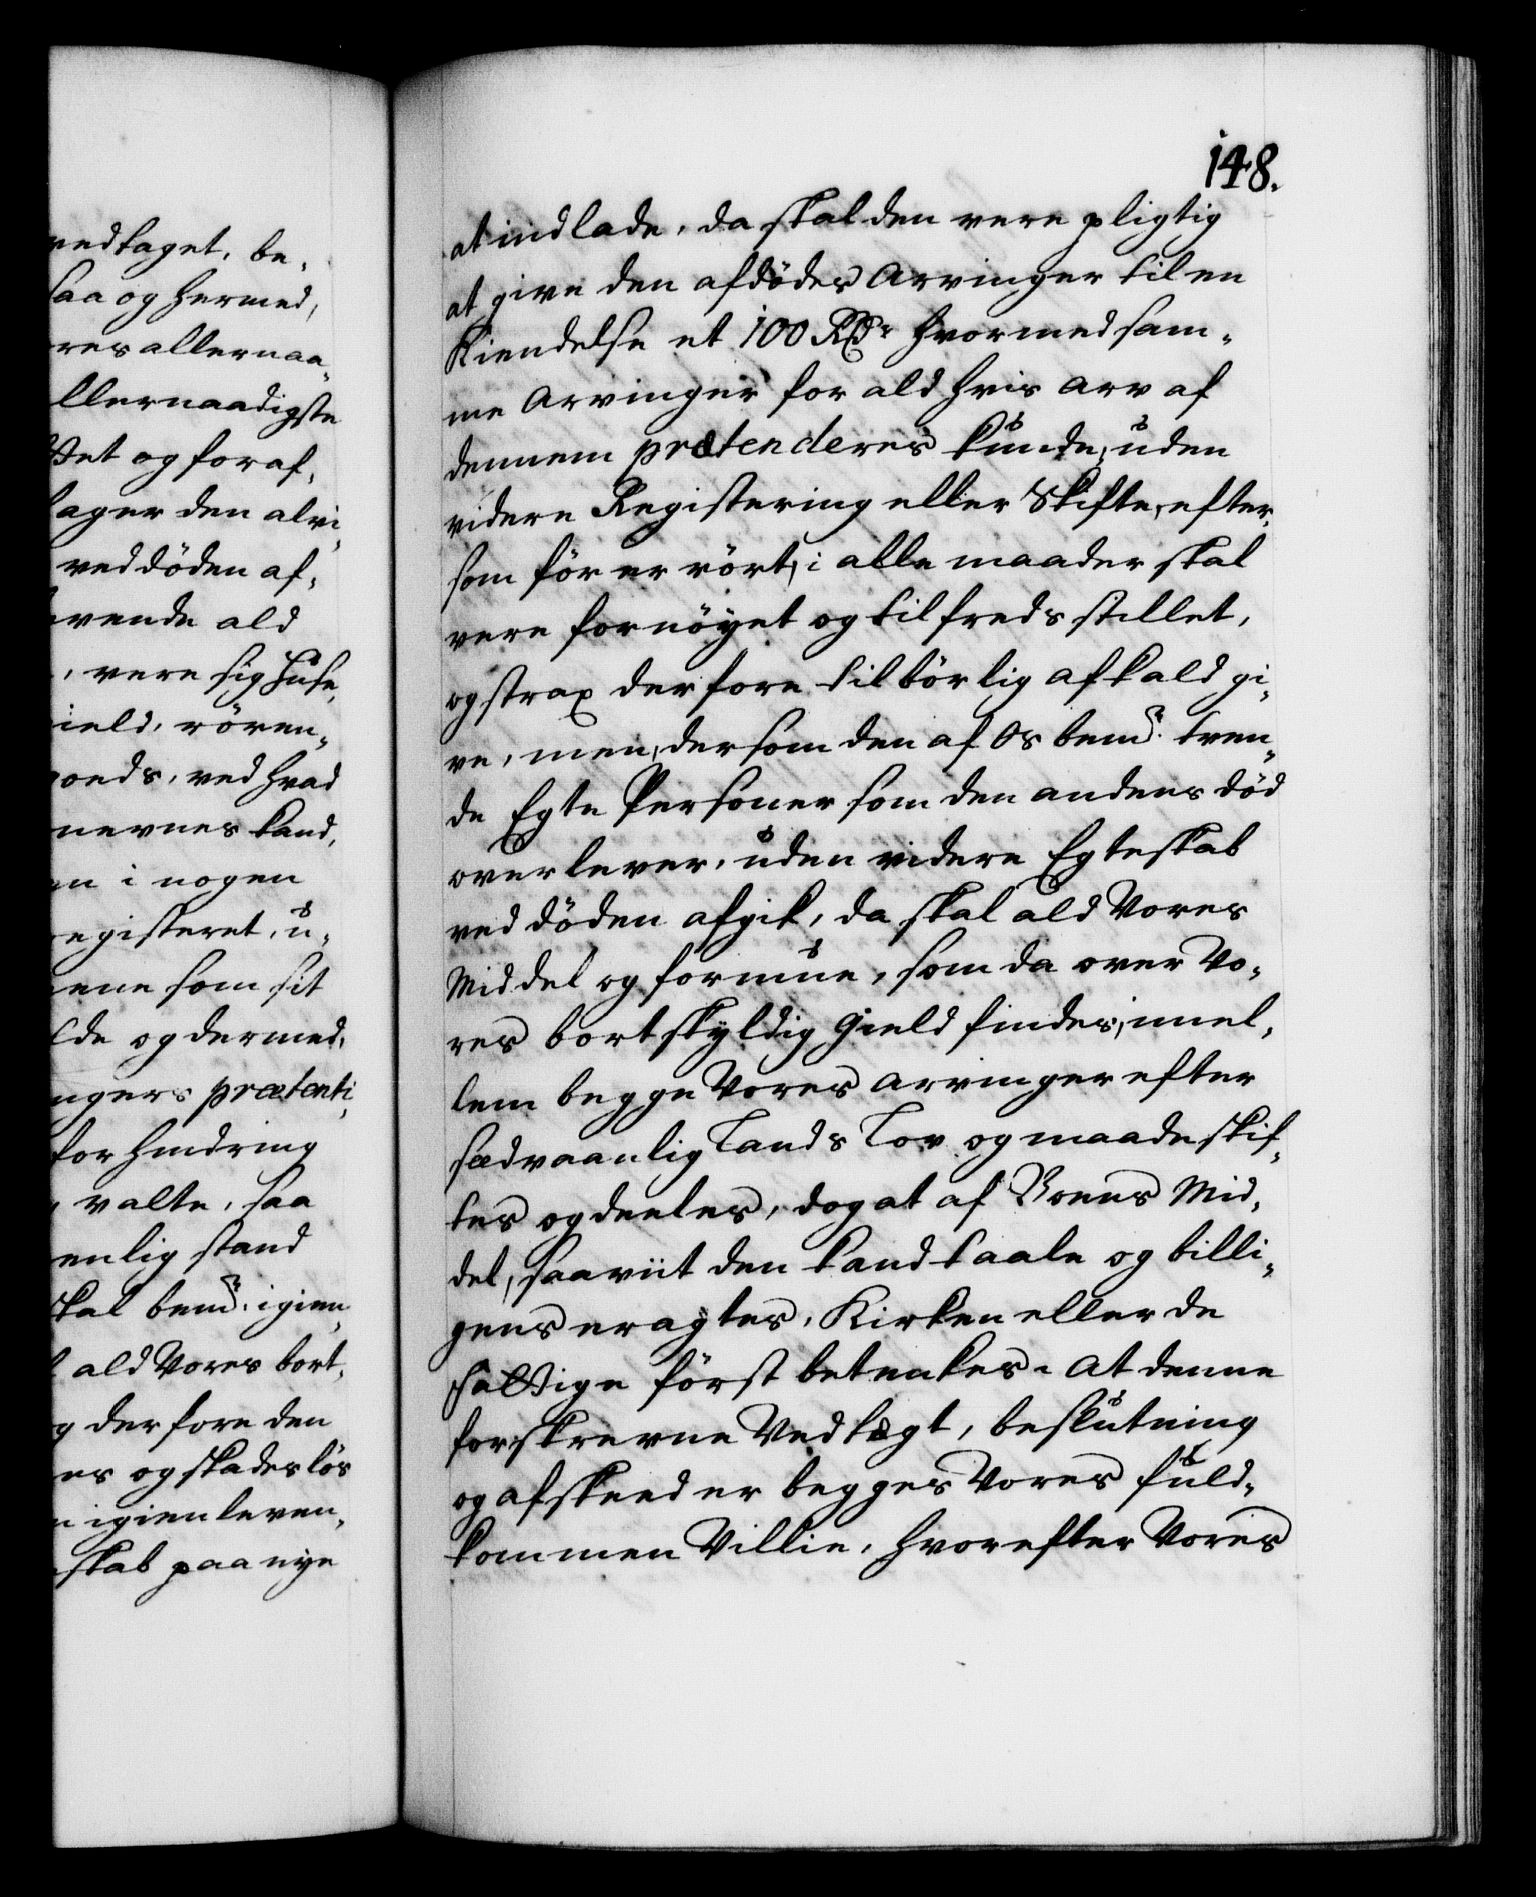 vedtaget, be-
saa og hermed,
res allernaa-
llernaadigste
Det og foraf-
ager den alvi-
ved döden af-
vende ald
, vere sig Huse,
ield, rören-
oeds, ved hvad
nevnes kand,
en i nogen
egisteret, u-
ene som sit
lde og dermed,
ngers prætenti-
for hindring
valte, saa
enlig stand
skal bemt. igien-
ald Vores bort-
g derfore den
es og skadeslös
n igienleven-
skab paa nye
148.
at indlade, da skal den vere pligtig
at give den afdödes Arvinger til en
Kiendelse et 100 Rdr. hvormed sam-
me Arvinger for ald hvis Arv af
dennem prætenderes kunde, uden
videre Registering eller Skifte, efter-
som för er rört, i alle maader skal
vere fornöyet og tilfreds stillet,
og strax derfore tilbörlig afkald gi-
ve, men, dersom den af Os bemt. tven-
de Egte Personer som den andens död
overlever, uden videre Egteskab
ved döden afgik, da skal ald Vores
Middel og formue, som da over Vo-
res bortskyldig Gield findes, imel-
lem begge Vores Arvinger efter
sædvaanlig Lands Lov og maade skif-
tes og deeles, dog at af Boens Mid-
del, saaviit den kand taale og billi-
gens eragtes, Kirken eller de
fattige först betenkes. At denne
forskrevne Vedtægt, beslutning
og afskeed er begges Vores fuld-
kommen Villie, hvorefter Vores